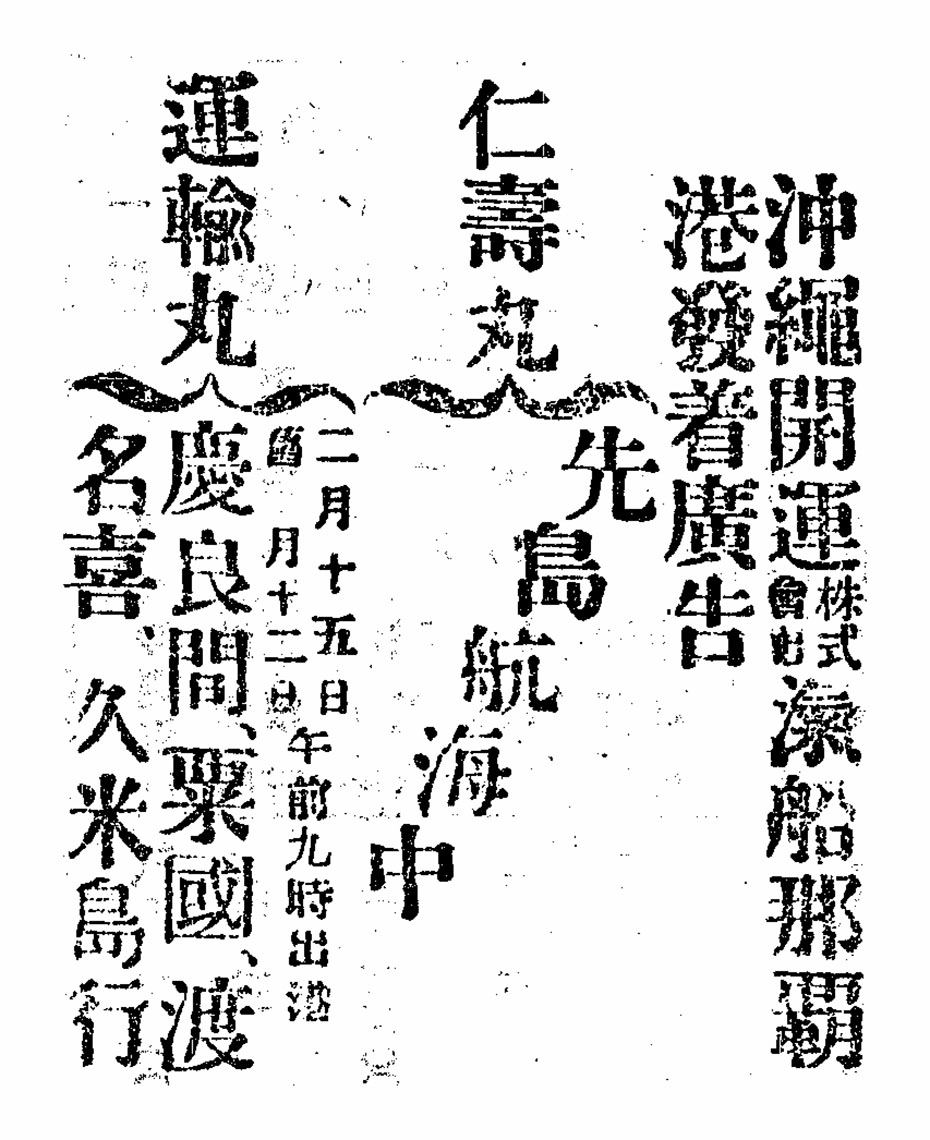 沖繩開運株式會社滊船那覇
港發着廣告
仁壽丸
先島航海中
運輸丸
二月十五日
月十二日
午前九時出港
慶良間、粟國、渡
名喜、久米島行